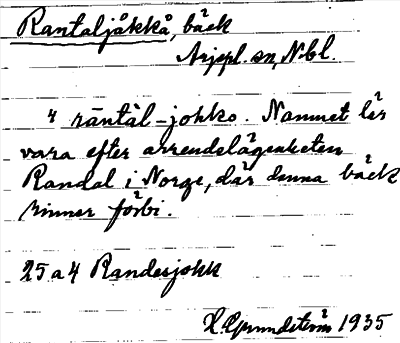 Rantaljåkkå, bäck
Arjepl. sn, Nbl.
4 răntàl-johko. Namnet lär
vara efter arrendelägenheten
Randal i Norge, där denna bäck
rinner förbi.
25 a 4 Randesjokk
H. Grundström 1935